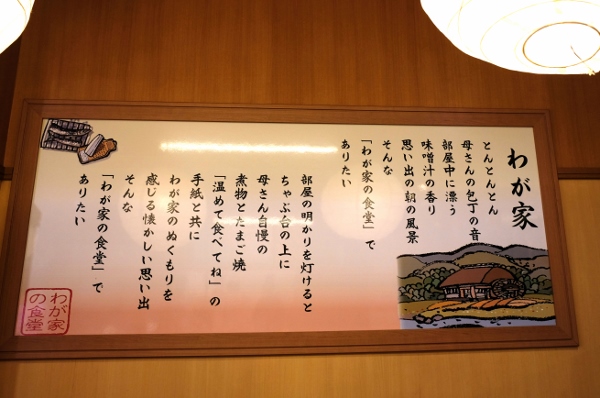 わが家
とんとんとん
母さんの包丁の音
部屋中に漂う
味噌汁の香り
思い出の朝の風景
そんな
「わが家の食堂」で
ありたい
部屋の明かりを灯けると
ちゃぶ台の上に
母さん自慢の
煮物とたまご焼
「温めて食べてね」の
手紙と共に
わが家のぬくもりを
感じる懐かしい思い出
そんな
「わが家の食堂」で
ありたい
わが家
の食堂